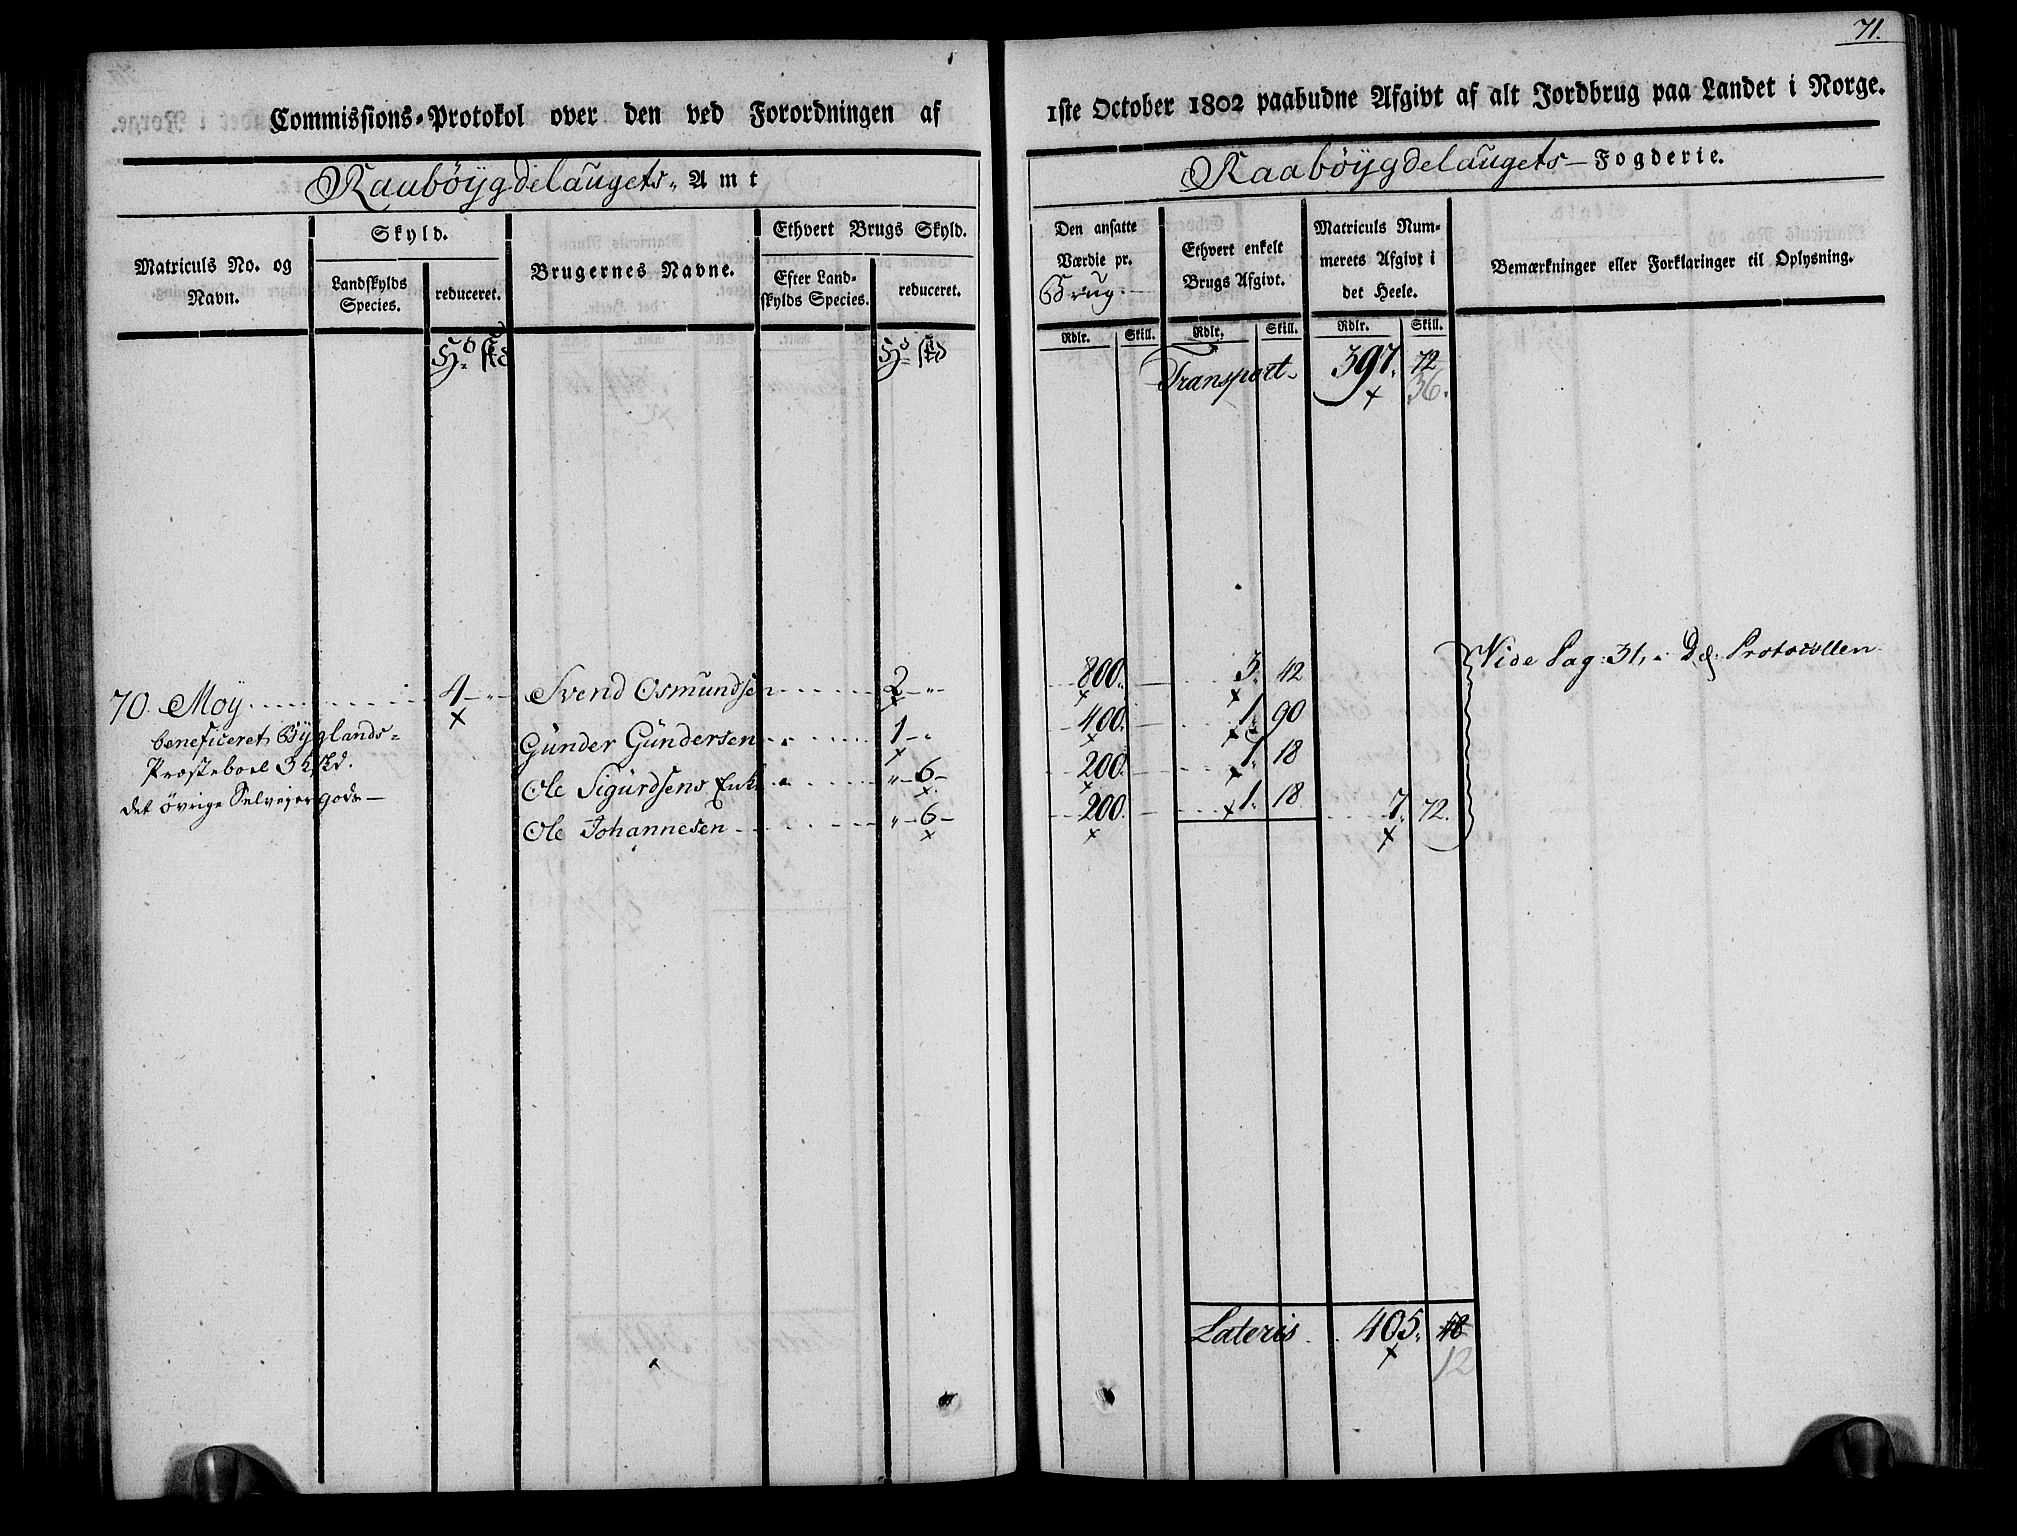 71.
Commissions-Protokol over den ved Forordningen af 1ste October 1802 paabudne Afgivt af alt Jordbrug paa Landet i Norge.
Raabøygdelaugets Amt
Raabøygdelaugets Fogderie.
Matriculs No. og Navn.
Skyld.
Landskylds Species.
reduceret.
Brugernes Navne.
Ethvert Brugs Skyld.
Efter Landskylds Species.
reduceret.
Den ansatte Værdie pr. Brug.
Ethvert enkelt Brugs Afgivt.
Matriculs Nummerets Afgivt i det Heele.
Bemærkninger eller Forklaringer til Oplysning.
Rdlr. Skill. Rdlr. Skill. Rdlr. Skill.
Transport 397. 72
36.
70. Moy 4 - " - Svend Osmundsen 2 - " 800. 3. 42 Vide Pag: 31, i D. Protocollen
beneficeret Byglands= Gunder Gundersen 1 - " 400. 1. 90
Præsteboel 3 hskd. Ole Sigurdsens Enke " - 6 - 200. 1. 18
det øvrige Selveiergods - Ole Johannesen " - 6 - 200. 1. 18. 7. 72.
Lateris 405. 48
12